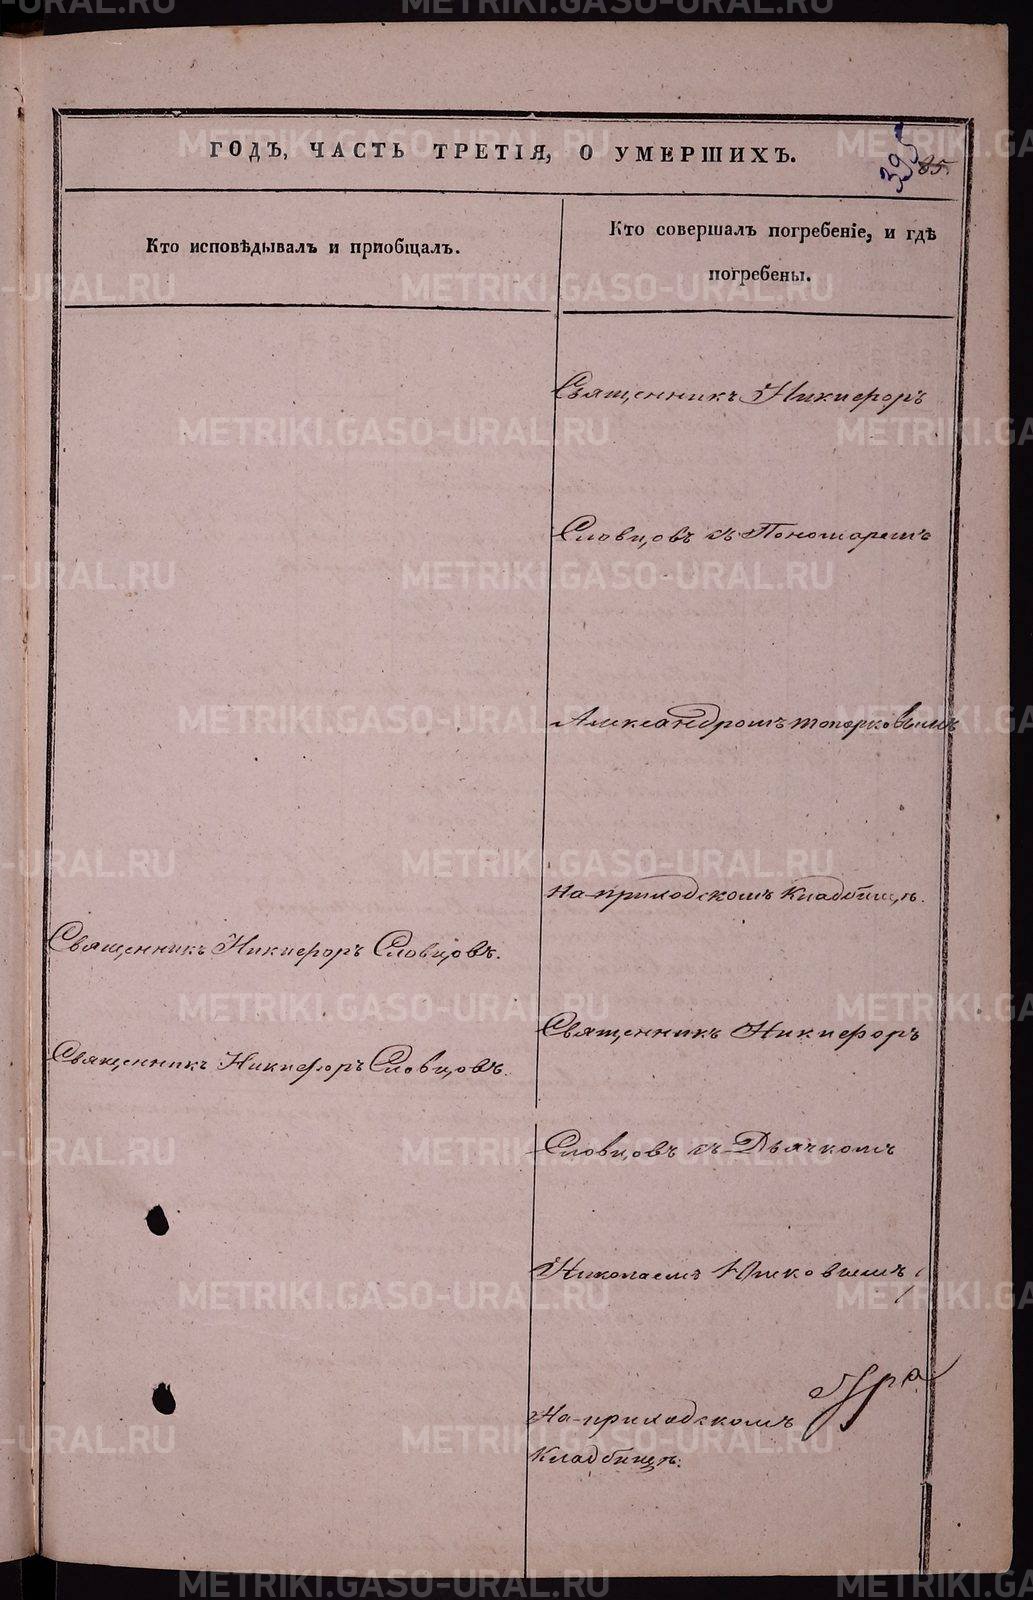 ГОДЪ, ЧАСТЬ ТРЕТІЯ, О УМЕРШИХЪ.
395
85.
Кто исповѣдывалъ и пріобщалъ.
Кто совершалъ погребеніе, и гдѣ
погребены.
Священникъ Никифоръ
Словцовъ съ Пономаремъ
Александромъ Топорковымъ
На приходскомъ Кладбищѣ.
Священникъ Никифоръ Словцовъ.
Священникъ Никифоръ Словцовъ.
Священникъ Никифоръ
Словцовъ съ Дьячкомъ
Николаемъ
На приходскомъ
Кладбищѣ.
METRIKI.GASO-URAL.RU